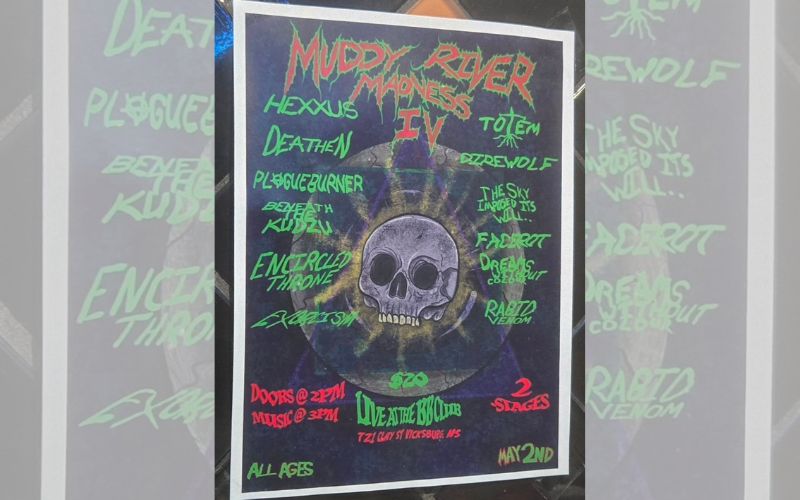 MUDDY RIVER
MADNESS
IV
HEXXUS
DEATHEN
PLAGUEBURNER
BENEATH
THE
KUDZU
ENCIRCLED
THRONE
EXORCISM
TOTEM
DIREWOLF
THE SKY
IMPOSED ITS
WILL..
FACEROT
DREAMS
WITHOUT
COLOUR
RABID
VENOM
DOORS @ 2PM
MUSIC @ 3PM
$20
LIVE AT THE BB CLUB
721 CLAY ST VICKSBURG, MS
2
STAGES
ALL AGES
MAY 2ND